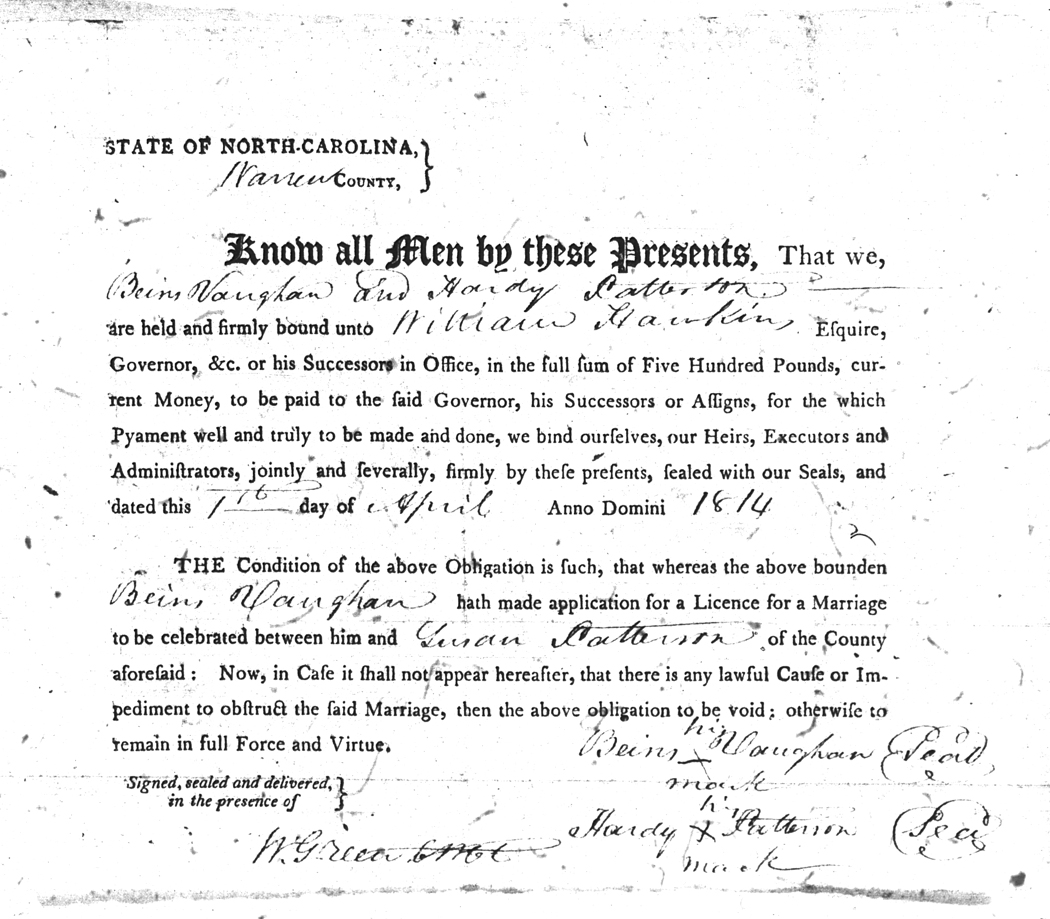 STATE OF NORTH-CAROLINA,
Warren COUNTY,
Know all Men by these Presents, That we,
Beins Vaughan and Hardy Patterson
are held and firmly bound unto William Hawkins Eſquire,
Governor, &c. or his Succeſſors in Office, in the full ſum of Five Hundred Pounds, cur-
rent Money, to be paid to the ſaid Governor, his Succeſſors or Aſſigns, for the which
Pyament well and truly to be made and done, we bind ourſelves, our Heirs, Executors and
Adminiſtrators, jointly and ſeverally, firmly by theſe preſents, ſealed with our Seals, and
dated this day of April Anno Domini 1814
THE Condition of the above Obligation is ſuch, that whereas the above bounden
Beins Vaughan hath made application for a Licence for a Marriage
to be celebrated between him and Susan Patterson of the County
aforeſaid: Now, in Caſe it ſhall not appear hereafter, that there is any lawful Cauſe or Im-
pediment to obſtruct the ſaid Marriage, then the above obligation to be void; otherwiſe to
remain in full Force and Virtue.
his
Beins X Vaughan (Seal)
mark
Signed, sealed and delivered,
in the presence of
his
Hardy X Patterson (Seal)
mark
W. Green